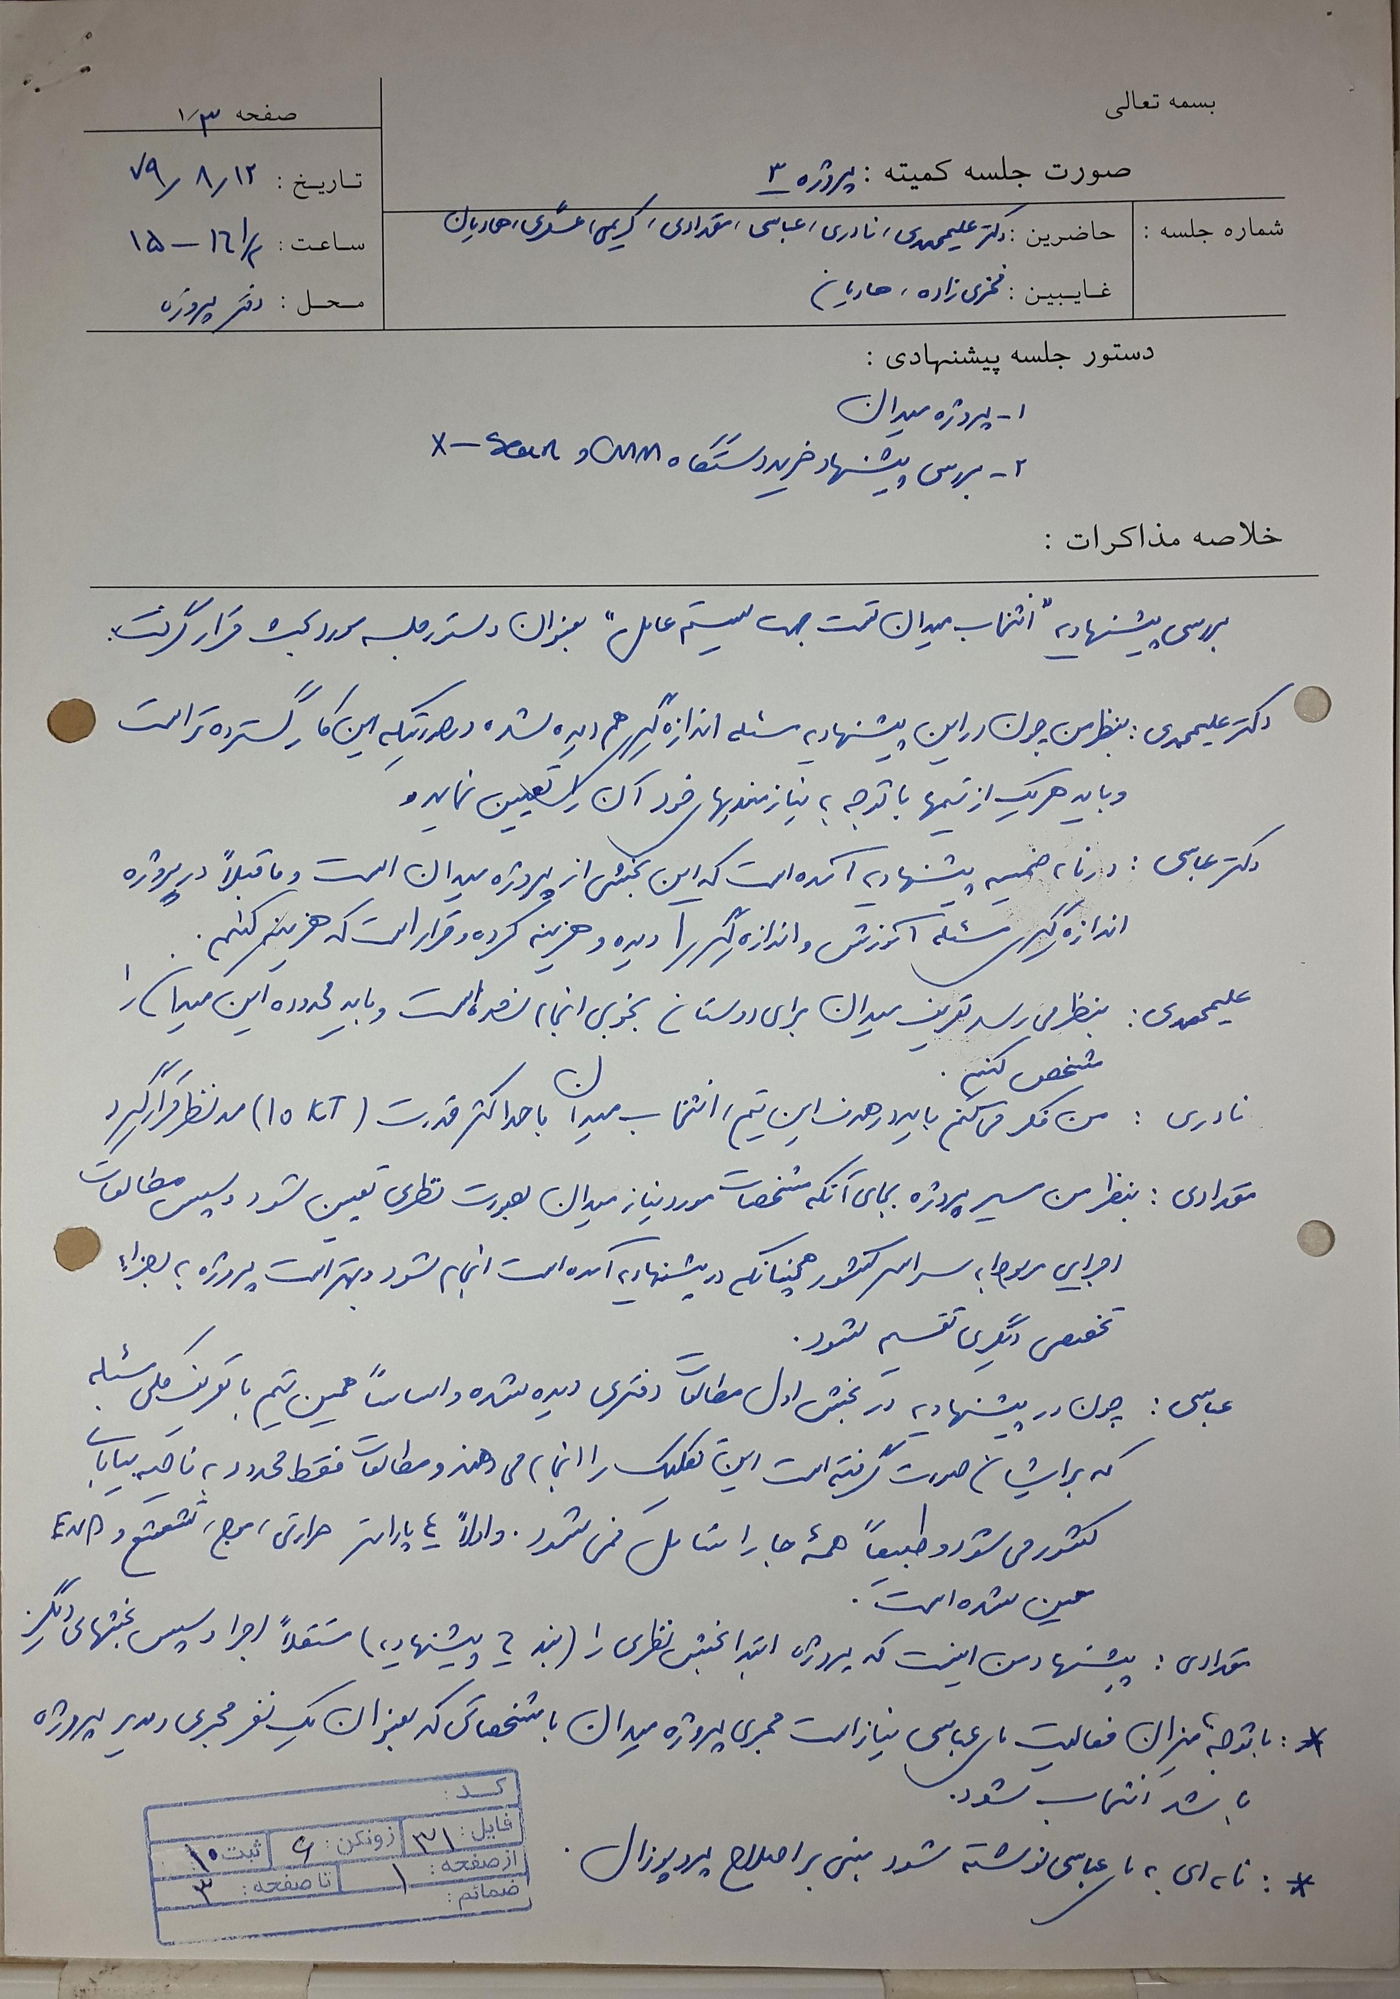 بسمه تعالی
صفحه ۱/۳
صورت جلسه کمیته : پروژه ۳
تاریخ : ۷۹/۸/۱۲
شماره جلسه :
حاضرین : دکتر علیمحمدی، نادری، عباسی، مقدادی، کریمی، عسگری، هادیان
ساعت : ۱۵ –
غایبین : فخری زاده، هادیان
محل : دفتر پروژه
دستور جلسه پیشنهادی :
۱- پروژه میدان
۲- بررسی پیشنهاد خرید دستگاه CMM و X-Scan
خلاصه مذاکرات :
بررسی پیشنهادیه "انتخاب میدان تست جهت سیستم عامل" بعنوان دستور جلسه مورد بحث قرار گرفت.
دکتر علیمحمدی : بنظر من چون در این پیشنهادیه مسئله اندازه گیری هم دیده نشده درصورتیکه این کار گسترده تر است
و باید هر یک از تیمها با توجه به نیازمندیهای خود آن را تعیین نماید
دکتر عباسی : در نامه ضمیمه پیشنهادیه آمده است که این بخشی از پروژه میدان است و ما قبلاً در پروژه
اندازه گیری مسئله آموزش و اندازه گیری را دیده و هزینه کرده و قرار است که هزینه کنیم.
علیمحمدی : بنظر می رسد تعریف میدان برای دوستان بخوبی انجام نشده است و باید محدوده این میدان را
مشخص کنیم.
نادری : من فکر می کنم باید در هدف این تیم، انتخاب میدان با حداکثر قدرت (10 KT) مدنظر قرار گیرد
مقدادی : بنظر من مسیر پروژه بجای آنکه مشخصات مورد نیاز میدان بصورت نظری تعیین شود و سپس مطالعات
اجرایی مربوط به سراسر کشور همچنانکه در پیشنهادیه آمده است انجام شود بهتر است پروژه به اجزاء
تخصصی دیگری تقسیم شود.
عباسی : چون در پیشنهادیه در بخش اول مطالعات دفتری دیده شده و اساساً همین تیم با تعریف کلی مسئله
که برایشان صورت گرفته است این تفکیک را انجام می دهند و مطالعات فقط محدود به ناحیه بیابانی
کشور می شود و طبیعتاً همۀ جا را شامل نمی شود. و اولاً ۴ پارامتر حرارتی، موج، تشعشع و EMP
معین شده است.
مقدادی : پیشنهاد من اینست که پروژه ابتدا بخش نظری را (بند ج پیشنهادیه) مستقلاً اجرا و سپس بخشهای دیگر
* : با توجه به میزان فعالیت عباسی نیاز است مجری پروژه میدان با مشخصاتی که بعنوان یک نفر مجری و مدیر پروژه
باشد انتخاب شود.
* : نامه ای به عباسی نوشته شود مبنی بر اصلاح پروپوزال.
کـد :
فایل : ۳۱ زونکن : ۶ ثبت : ۱۰
از صفحه : ۱ تا صفحه : ۳
ضمائم :